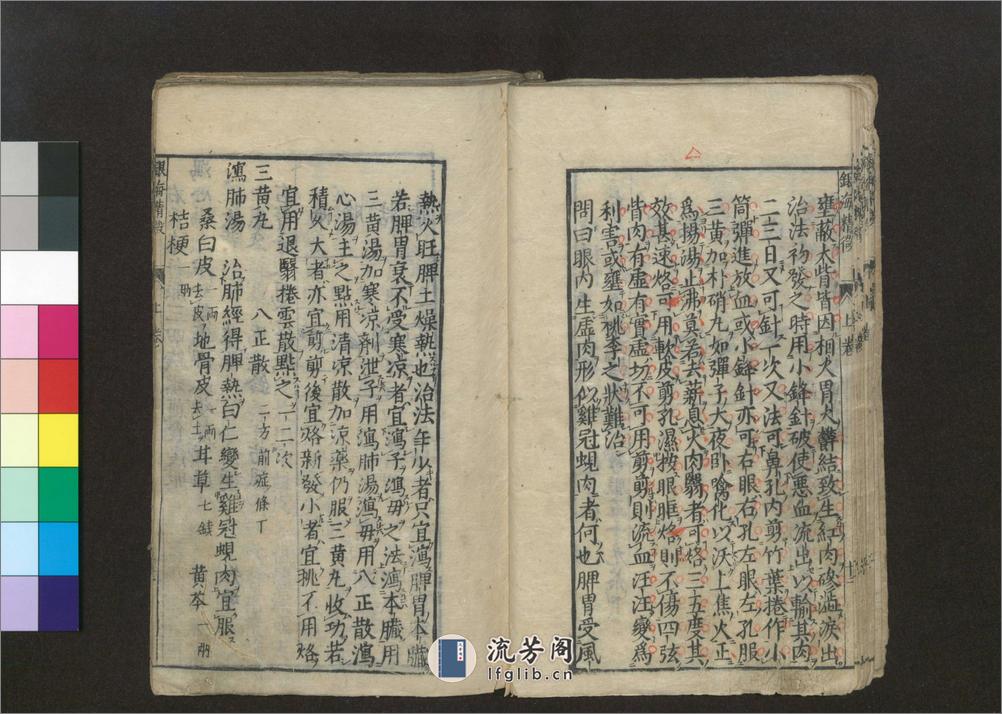 壅蔽大眥皆因相火胃火鬱結致生紅肉磣澁淚出
治法初發之時用小鋒針破使惡血流出以輸其肉
二三日又可針一次又法可鼻孔內剪竹葉捲作小
筒彈進放血或小鋒針亦可右眼右孔左眼左孔服
三黃加朴硝丸如彈子大夜卧噙化以沃上焦火正
為揚湯止沸莫若去薪息火肉翳者可烙三五度其
效甚速烙可用軟皮剪孔濕按眼眶烙則不傷四弦
眥肉有虛有實虛切不可用剪剪則流血汪汪變為
利害或壅如桃李之狀難治
問曰眼內生虛肉形似雞冠蜆肉者何也脾胃受風
熱火旺脾土燥熱也治法年少者只宜瀉脾胃本臟
若脾胃衰不受寒涼者宜瀉子瀉毋之法瀉本臟用
三黃湯加寒涼劑泄子用瀉肺湯瀉毋用八正散瀉
心湯主之點用清涼散加涼藥仍服三黃丸收功若
積久大者亦宜剪剪後宜烙新發小者宜挑不用烙
宜用退翳捲雲散點之一二次
三黃丸 八正散 二方前症條下
瀉肺湯 治肺經得脾熱白仁變生雞冠蜆肉宜服
桑白皮 去皮一兩 地骨皮 去土一兩 甘草 七錢 黃芩 一兩
桔梗 一兩
銀海精微
上卷
流芳阁
lfglib.cn